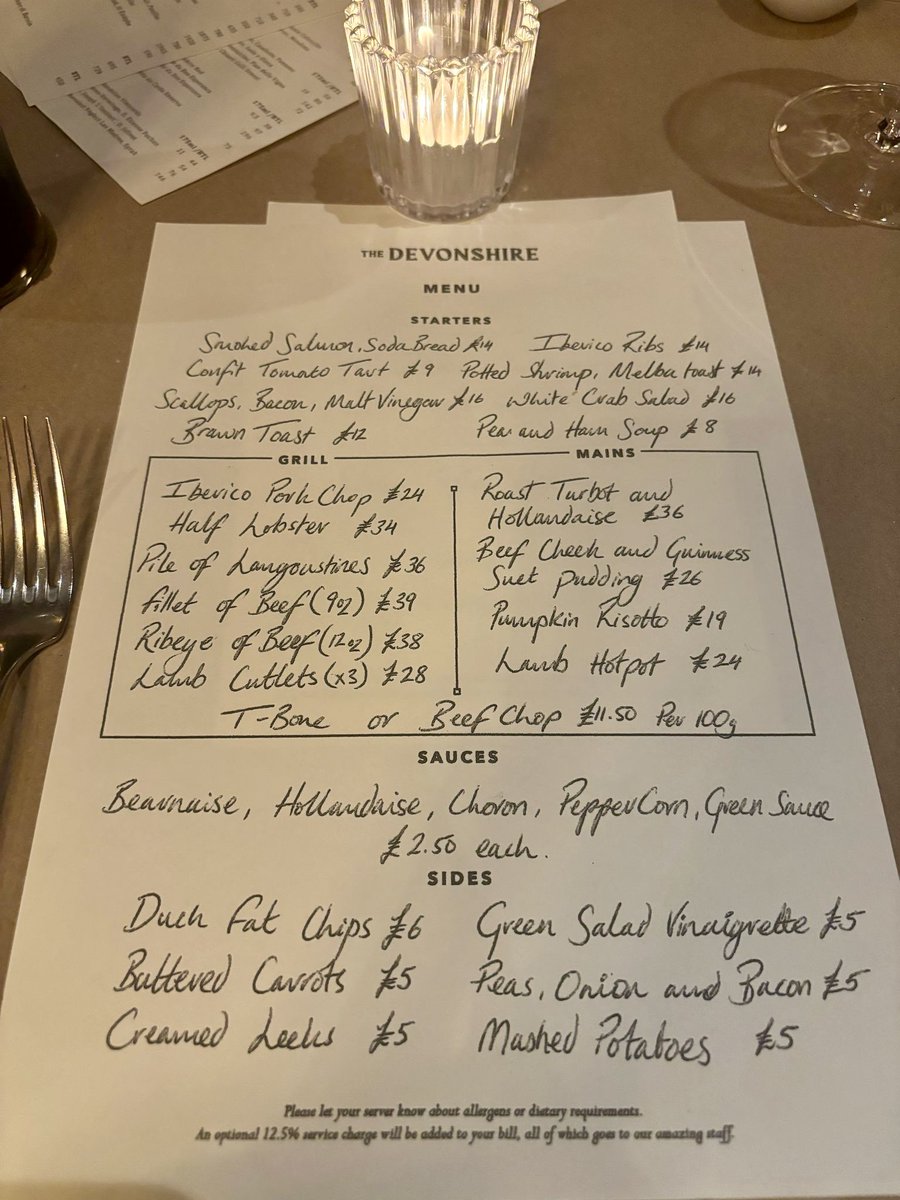 THE DEVONSHIRE
MENU
STARTERS
Smoked Salmon, Soda Bread £14 Iberico Ribs £14
Confit Tomato Tart £9 Potted Shrimp, Melba toast £14
Scallops, Bacon, Malt Vinegar £16 White Crab Salad £16
Brawn Toast £12 Pea and Ham Soup £8
GRILL
Iberico Pork Chop £24
Half Lobster £34
Pile of Langoustines £36
Fillet of Beef (9oz) £39
Ribeye of Beef (12oz) £38
Lamb Cutlets (x3) £28
MAINS
Roast Turbot and
Hollandaise £36
Beef Cheek and Guinness
Suet pudding £26
Pumpkin Risotto £19
Lamb Hotpot £24
T-Bone or Beef Chop £11.50 Per 100g
SAUCES
Bearnaise, Hollandaise, Choron, PepperCorn, Green Sauce
£2.50 each.
SIDES
Duck Fat Chips £6 Green Salad Vinaigrette £5
Buttered Carrots £5 Peas, Onion and Bacon £5
Creamed Leeks £5 Mashed Potatoes £5
Please let your server know about allergens or dietary requirements.
An optional 12.5% service charge will be added to your bill, all of which goes to our amazing staff.